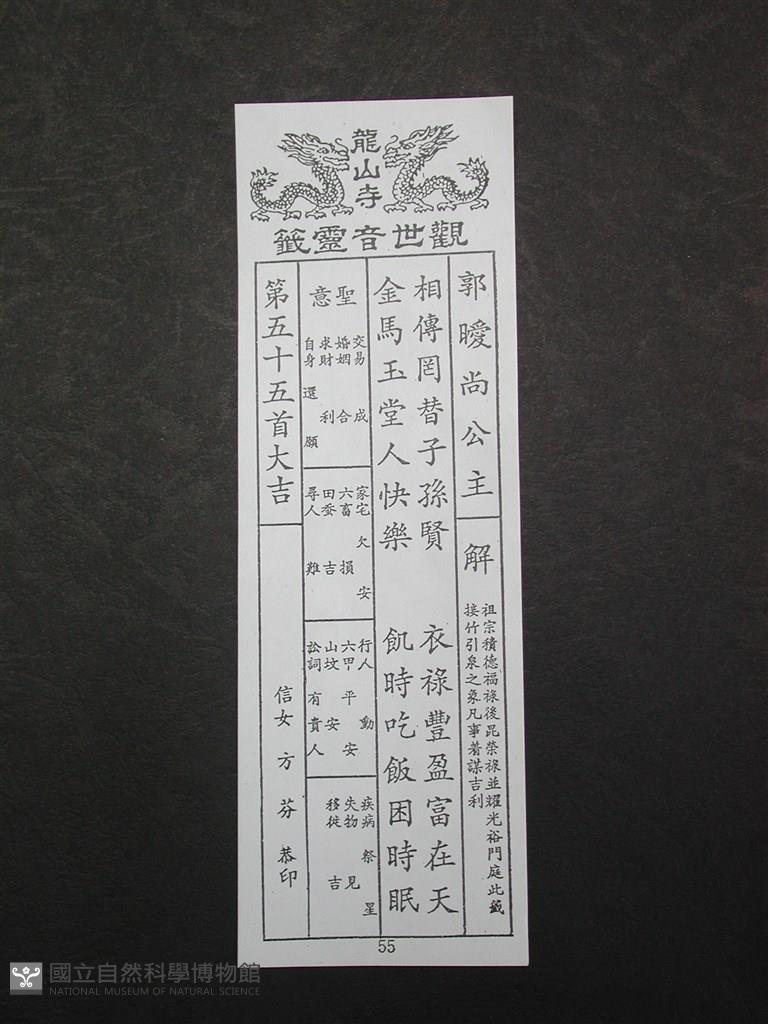 龍山寺
觀世音靈籤
郭曖尚公主
解
祖宗積德福祿後昆榮祿並耀光裕門庭此籤
接竹引泉之象凡事着謀吉利
相傳罔替子孫賢 衣祿豐盈富在天
金馬玉堂人快樂 飢時吃飯困時眠
聖意
交易 成
婚姻 合
求財 利
自身 還願
家宅 欠安
六畜 損
田蚕 吉
尋人 難
行人 動
六甲 平安
山坟 安
訟詞 有貴人
疾病 祭星
失物 見
移徙 吉
第五十五首大吉
信女 方芬 恭印
55
國立自然科學博物館
NATIONAL MUSEUM OF NATURAL SCIENCE